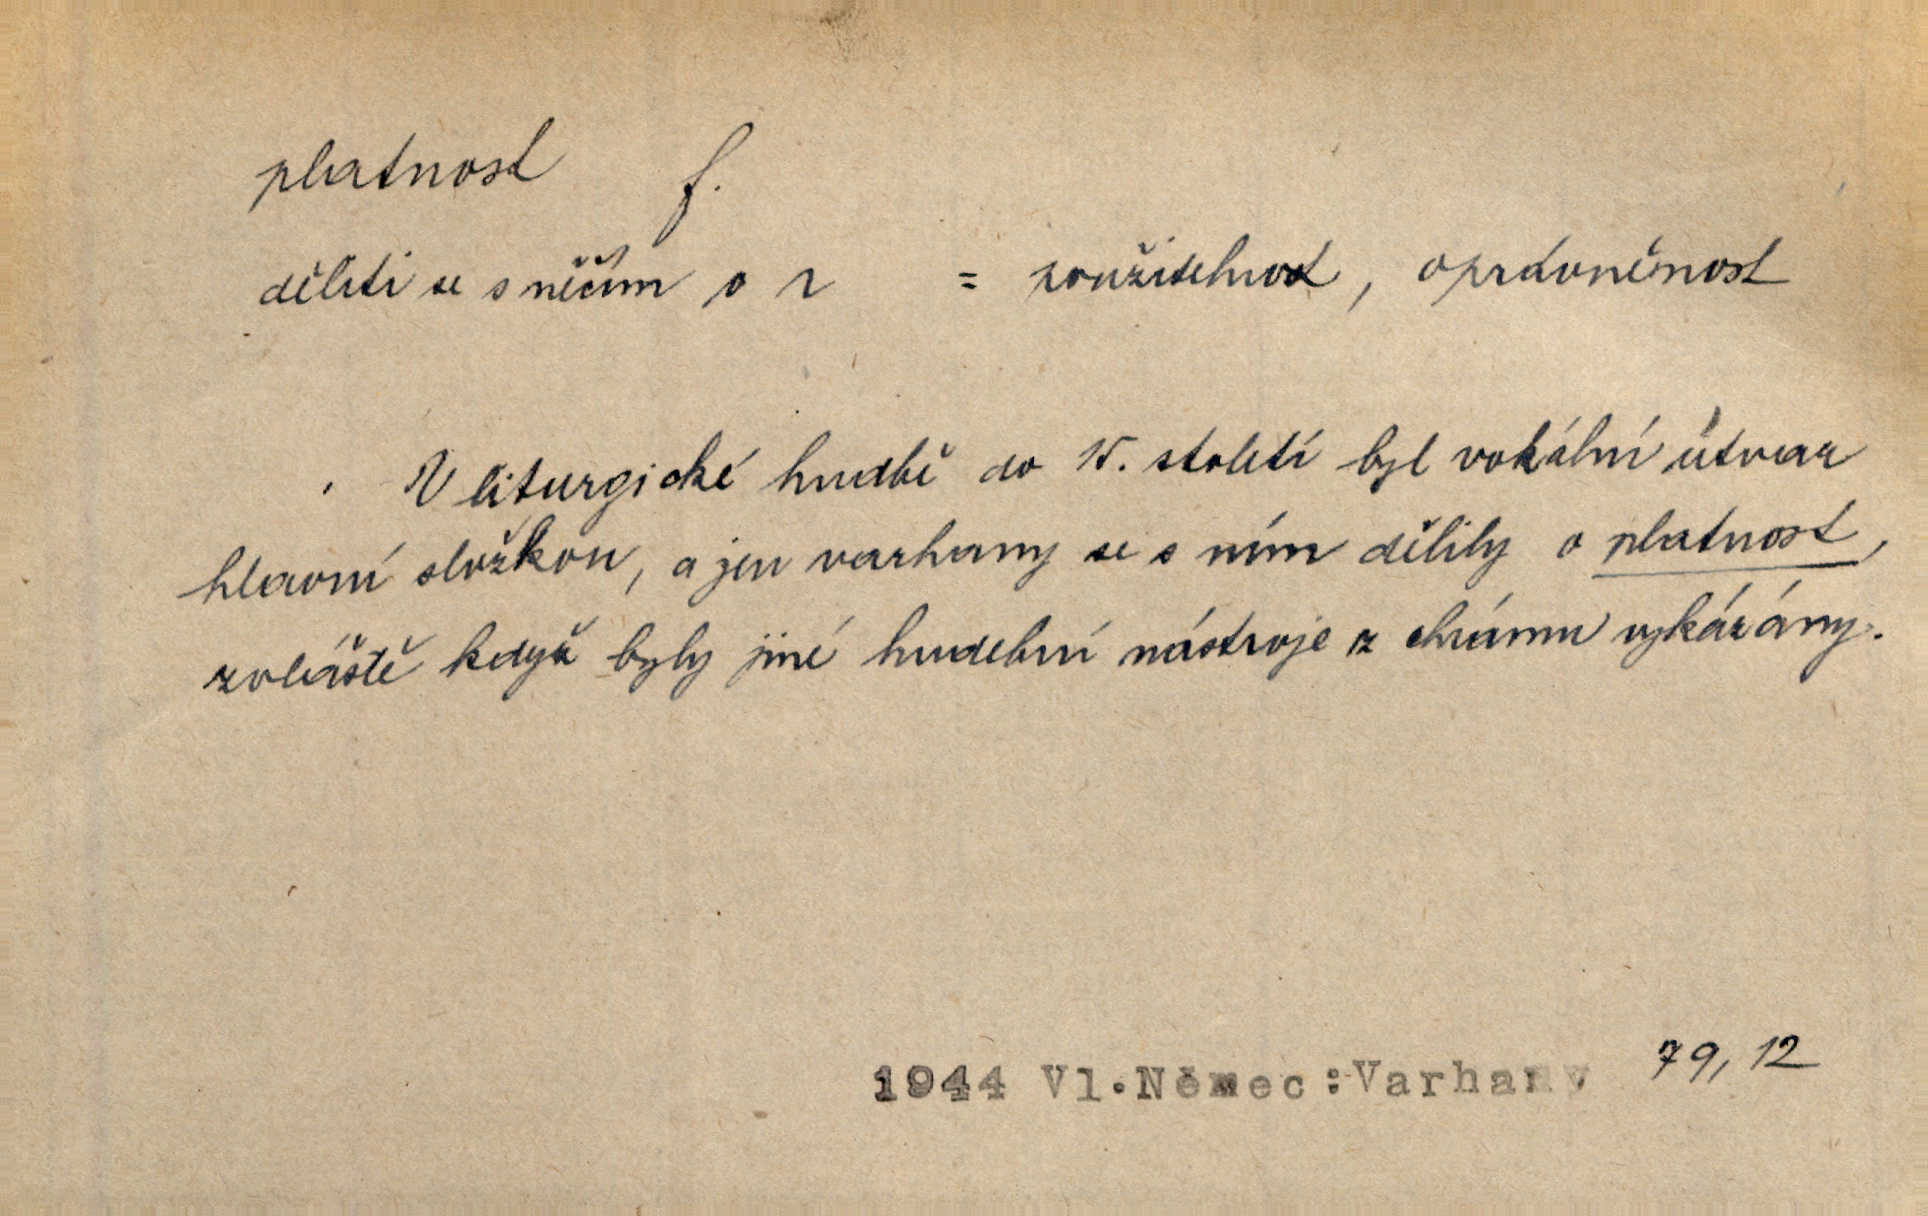 platnost f.
děliti se s něčím o p = použitelnost, oprávněnost
V liturgické hudbě do 15. století byl vokální útvar
hlavní složkou, a jen varhany se s ním dělily o platnost,
zvláště když byly jiné hudební nástroje z chrámu vykázány.
1944 Vl.Němec:Varhany 79, 12